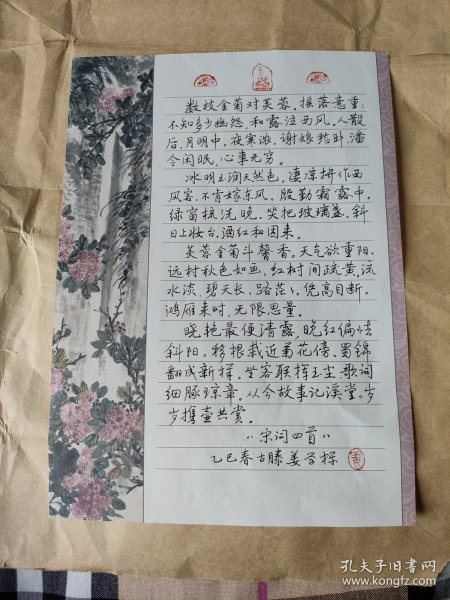 数枝金菊对芙蓉。摇落意重重。
不知多少幽怨，和露泣西风。人散
后，月明中，夜寒浓。谢娘愁卧，潘
令闲眠，心事无穷。
冰明玉润天然色，凄凉拼作西
风客。不肯嫁东风。殷勤霜露中。
绿窗梳洗晚。笑把玻璃盏。斜
日上妆台。酒红和困来。
芙蓉金菊斗馨香。天气欲重阳。
远村秋色如画，红树间疏黄。流
水淡，碧天长，路茫茫。凭高目断。
鸿雁来时，无限思量。
晓艳最便清露，晚红偏怯
斜阳。移根栽近菊花傍。蜀锦
翻成新样。坐客联挥玉尘，歌词
细琢琼章。从今故事记溪堂。岁
岁携壶共赏。
"宋词四首"
乙巳春古滕姜学
孔夫子旧书网
www.kongfz.com